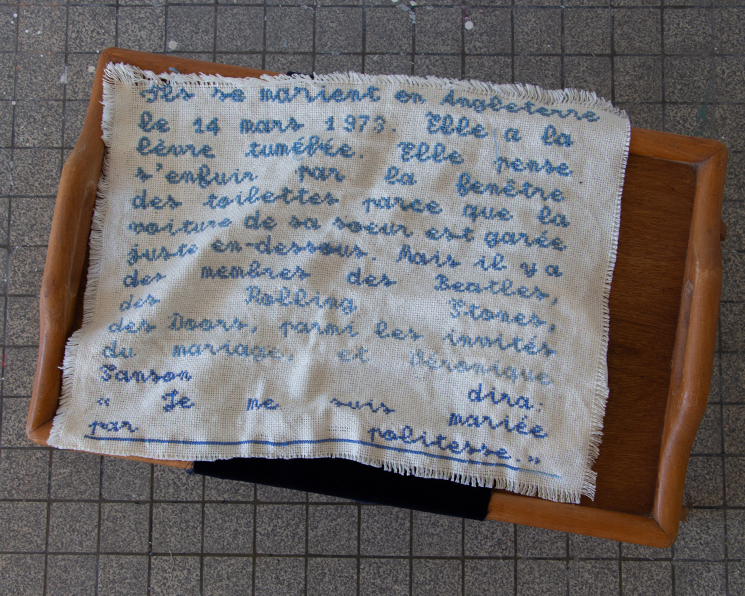 Ils se marient en Angleterre
le 14 mars 1973. Elle a la
lèvre tuméfiée. Elle pense
s'enfuir par la fenêtre
des toilettes parce que la
voiture de sa soeur est garée
juste en-dessous. Mais il y a
des membres des Beatles,
des Rolling Stones,
des Doors, parmi les invités
du mariage, et Véronique
Sanson dira:
« Je me suis mariée
par politesse. »